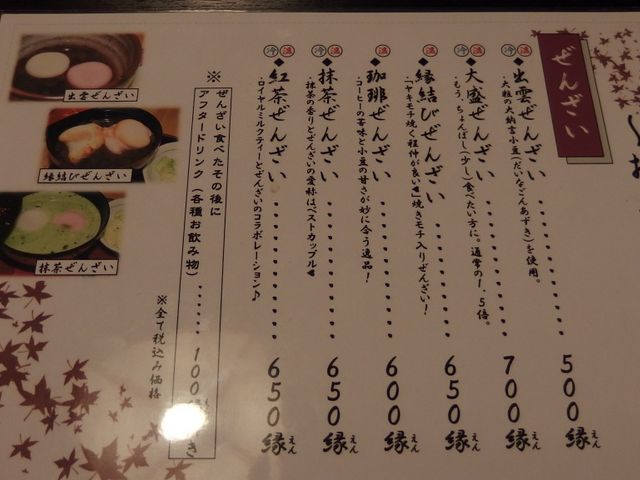 ぜんざい
冷 温
◆出雲ぜんざい・・・・・・・・・・500縁
えん
・大粒の大納言小豆(だいなごんあずき)を使用。
冷 温
◆大盛ぜんざい・・・・・・・・・・700縁
えん
・もう、ちょんぼし(少し)食べたい方に。通常の1.5倍。
温
◆縁結びぜんざい・・・・・・・・・650縁
えん
・「ヤキモチ焼く程仲が良い♥」焼きモチ入りぜんざい!
温
◆珈琲ぜんざい・・・・・・・・・・600縁
えん
・コーヒーの苦味と小豆の甘さが妙に合う逸品!
冷 温
◆抹茶ぜんざい・・・・・・・・・・650縁
えん
・抹茶の香りとぜんざいの愛称はベストカップル♥
冷 温
◆紅茶ぜんざい・・・・・・・・・・650縁
えん
・ロイヤルミルクティーとぜんざいのコラボレーション♪
※ ぜんざい食べたその後に
アフタードリンク(各種お飲み物)・・・・・・100 き
※全て税込み価格
出雲ぜんざい
縁結びぜんざい
抹茶ぜんざい